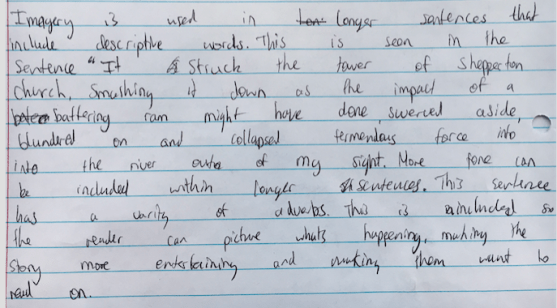 Imagery is used in longer sentences that
include descriptive words. This is seen in the
sentence "It struck the tower of shepperton
church, smashing it down as the impact of a
battering ram might have done, swerved aside,
blundered on and collapsed termendous force into
into the river outa of my sight. More tone can
be included within longer sentences. This sentence
has a varity of adverbs. This is included so
the reader can picture whats happening, making the
story more entertaining and making them want to
read on.